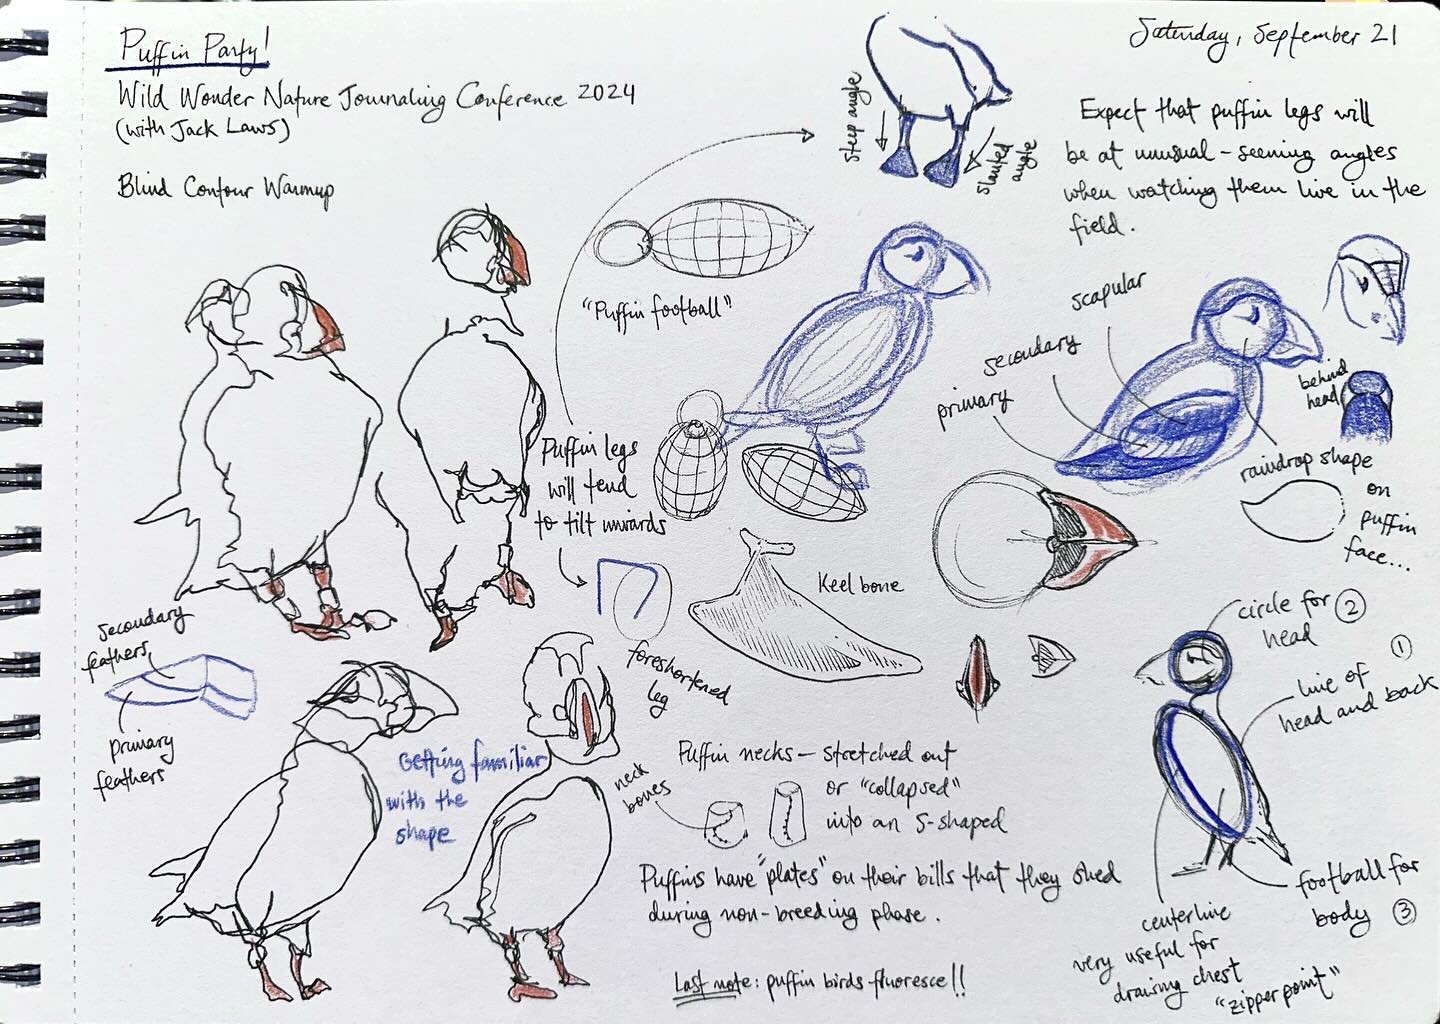 Puffin Party!
Wild Wonder Nature Journaling Conference 2024
(with Jack Laws)
Blind Contour Warmup
Saturday, September 21
steep angle
slanted
angle
Expect that puffin legs will
be at unusual-seeming angles
when watching them live in the
field.
"Puffin football"
scapular
secondary
primary
behind
head
raindrop shape
on
puffin
face...
Puffin legs
will tend
to tilt inwards
foreshortened
leg
Keel bone
secondary
feathers
primary
feathers
Getting familiar
with the
shape
circle for ②
head
①
line of
head and back
neck
bones
Puffin necks - stretched out
or "collapsed"
into an S-shaped
Puffins have "plates" on their bills that they shed
during non-breeding phase.
Last note: puffin birds fluoresce!!
football for
body ③
centerline
very useful for
drawing chest
"zipper point"